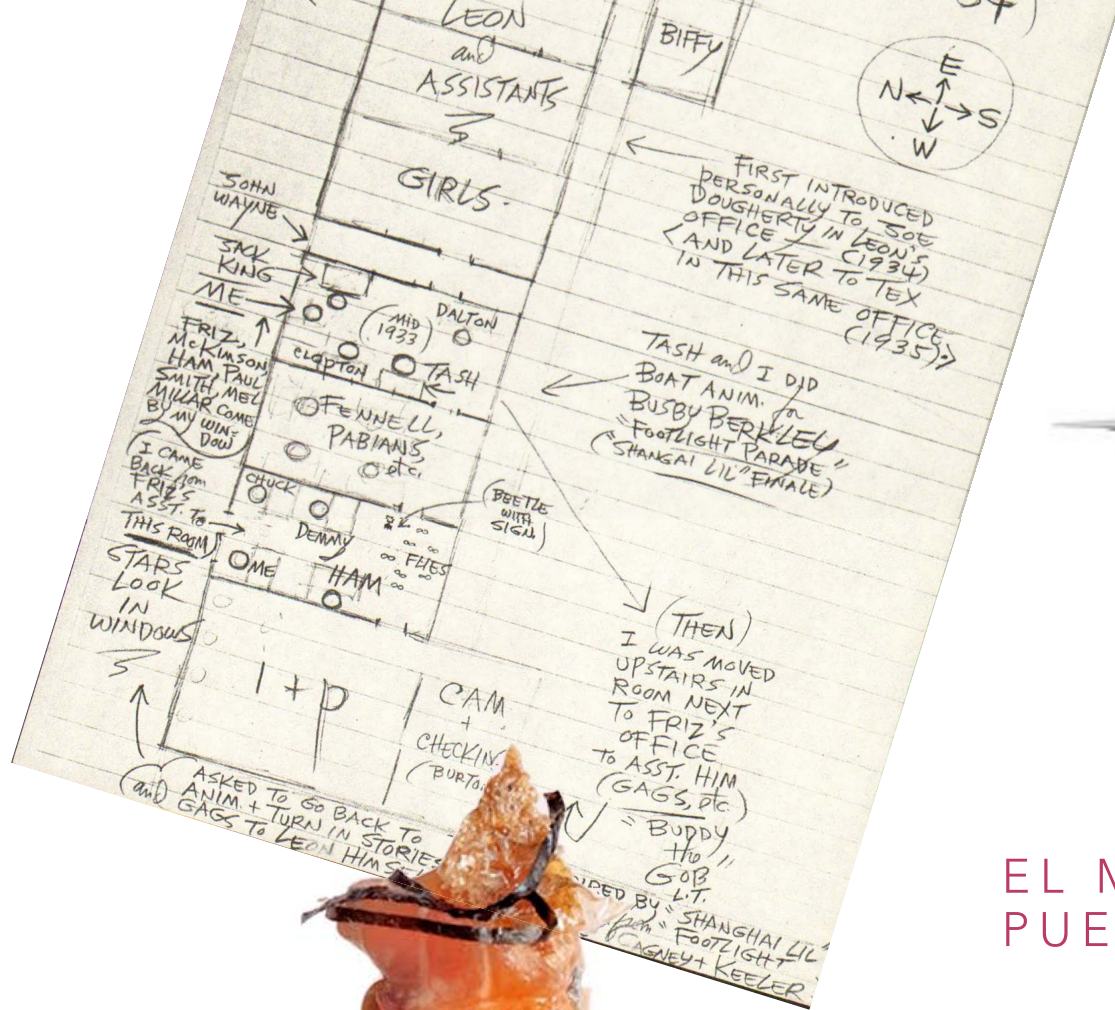 LEON
and
ASSISTANTS
GIRLS.
BIFFY
E
N S
W
FIRST INTRODUCED
PERSONALLY TO JOE
DOUGHERTY IN LEON'S
OFFICE (1934)
(AND LATER TO TEX
IN THIS SAME OFFICE
(1935))
JOHN
WAYNE
JACK
KING
ME
FRIZ,
McKIMSON,
HAM, PAUL
SMITH, MEL
MILLAR COME
BY MY WIN-
DOW
(MID
1933)
DALTON
CLAPTON
TASH
TASH and I DID
BOAT ANIM. for
BUSBY BERKLEY
"FOOTLIGHT PARADE"
("SHANGAI LIL" FINALE)
FENNELL,
PABIANS,
etc.
I CAME
BACK from
FRIZ'S
ASST. to
THIS ROOM
CHUCK
DEMMY
(BEETLE
WITH
SIGN)
FLIES
ME
HAM
STARS
LOOK
IN
WINDOWS
I + P
CAM
+
CHECKIN
(BURTO
(THEN)
I WAS MOVED
UPSTAIRS IN
ROOM NEXT
TO FRIZ'S
OFFICE
to ASST. HIM
(GAGS, etc)
"BUDDY
the
GOB"
L.T.
ASKED TO GO BACK TO
(and) ANIM. + TURN IN STORIES
GAGS TO LEON HIMSE
IRED BY "SHANGHAI LIL"
from "FOOTLIGHT
CAGNEY + KEELER
EL
PUE